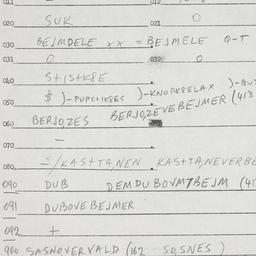 011 — 012
020 SUK 021 O
030 BEJMDELE xx = BEJMELE Q-T
031 O 032 O
040 S+IS+K8E
050 $ )-PUPC+IK8ES )-KNOPK8ELAX )-BUT
060 BERJOZES BERJOZEVEBEJMER (413
070 —
080 =/KAS+TA,NEN KAS+TA,NEVERBE
090 DUB DEMDUBOVM7BEJM (41
091 DUBOVEBEJMER
092 +
900 SASNOVERVALD (162 SO,SNES )